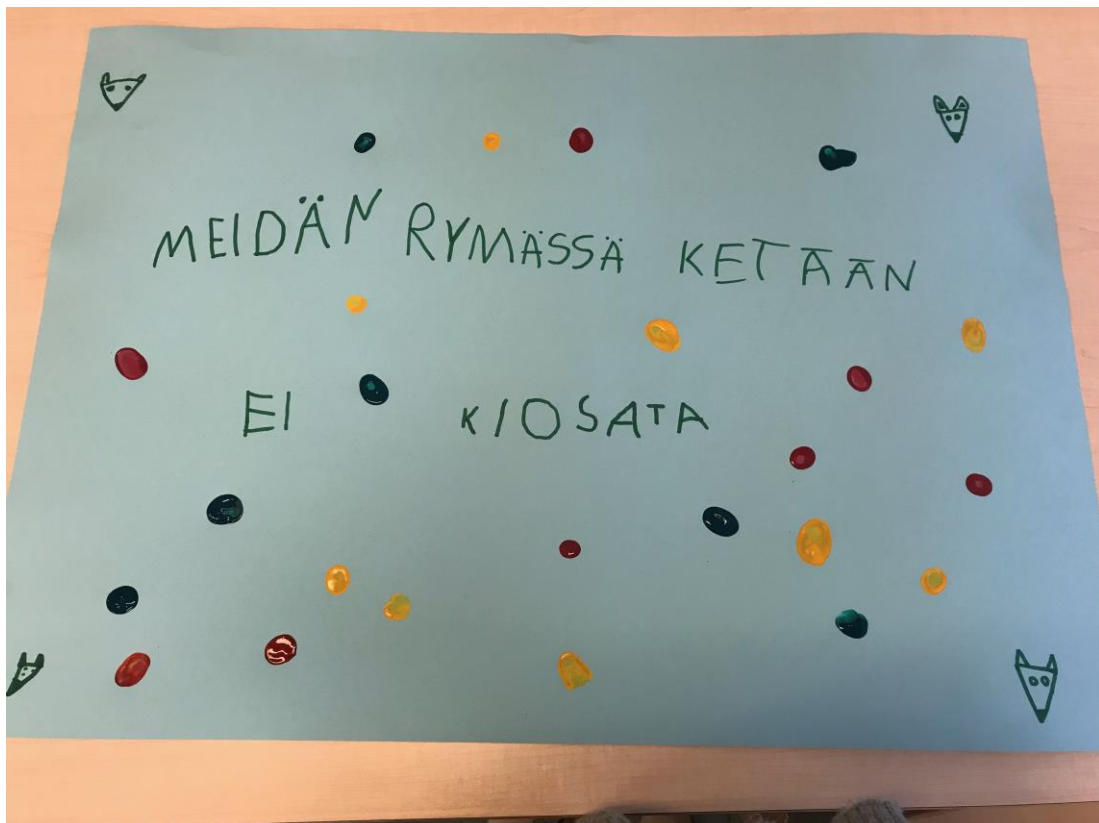 MEIDÄN RYMÄSSÄ KETÄÄN
EI KIOSATA